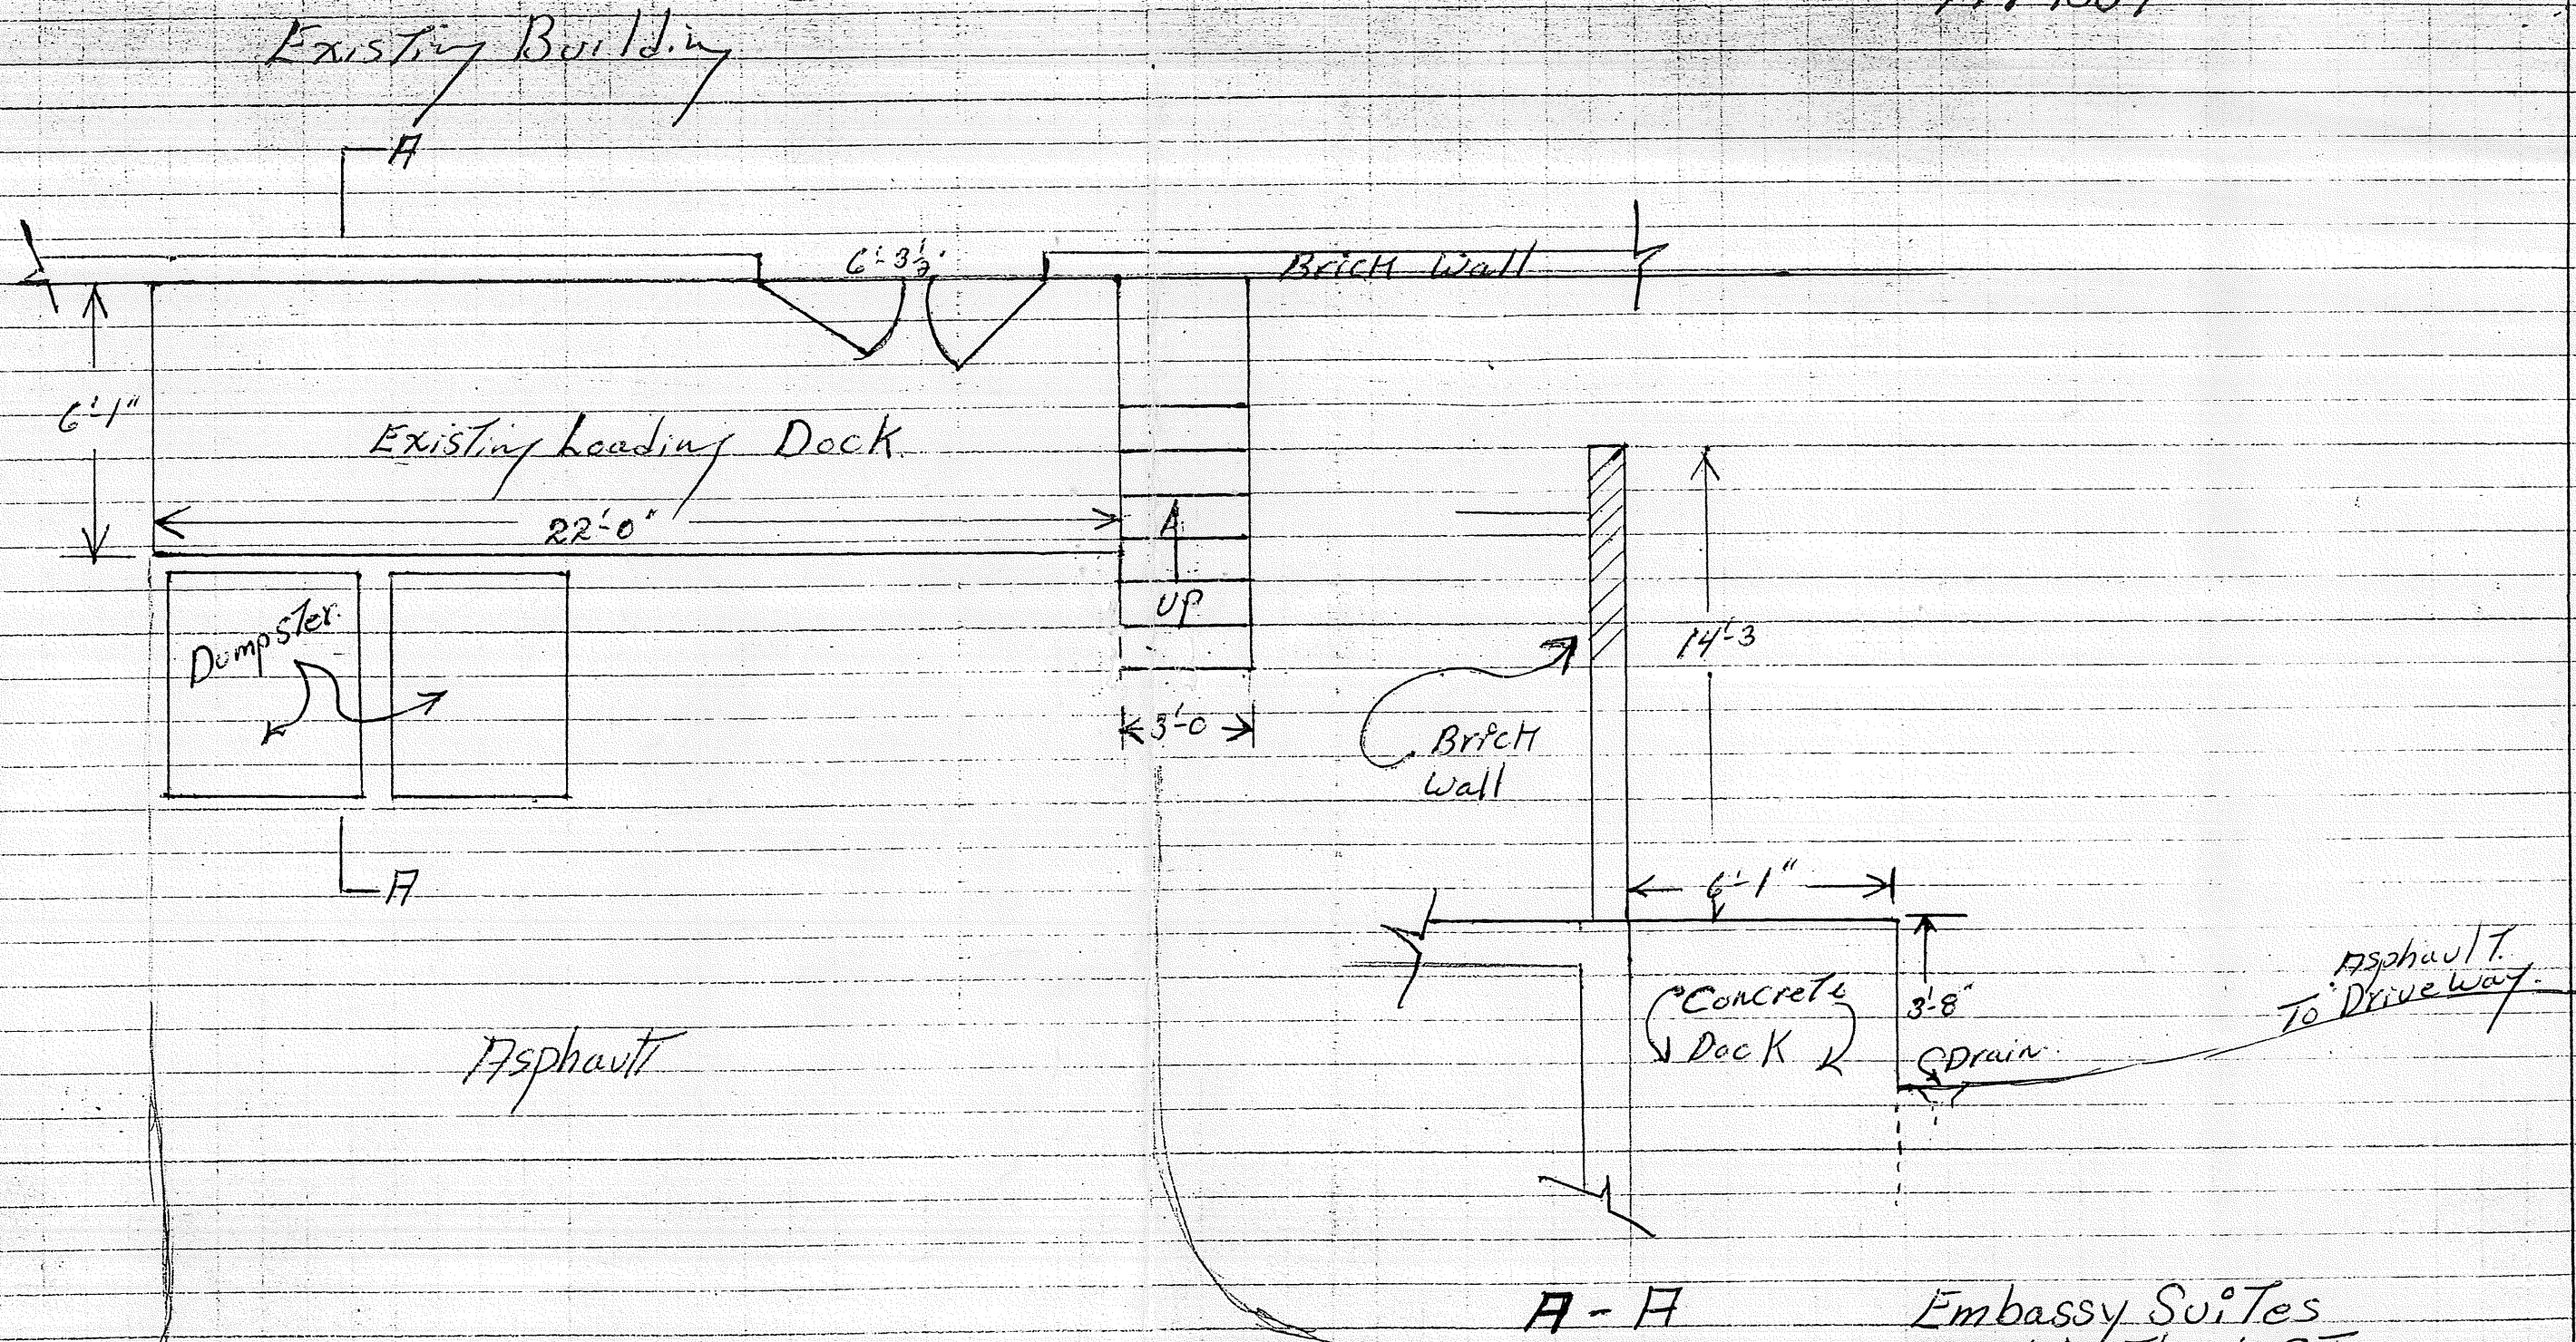 Existing Building
A
6'-3½"
Brick Wall
6'-1"
Existing Loading Dock
22'-0"
UP
Dumpster.
3'-0
A
Asphault
14'-3
Brick
Wall
6'-1"
Concrete
Dock
3'-8"
Drain
Asphault.
To Driveway.
A-A
Embassy Suites